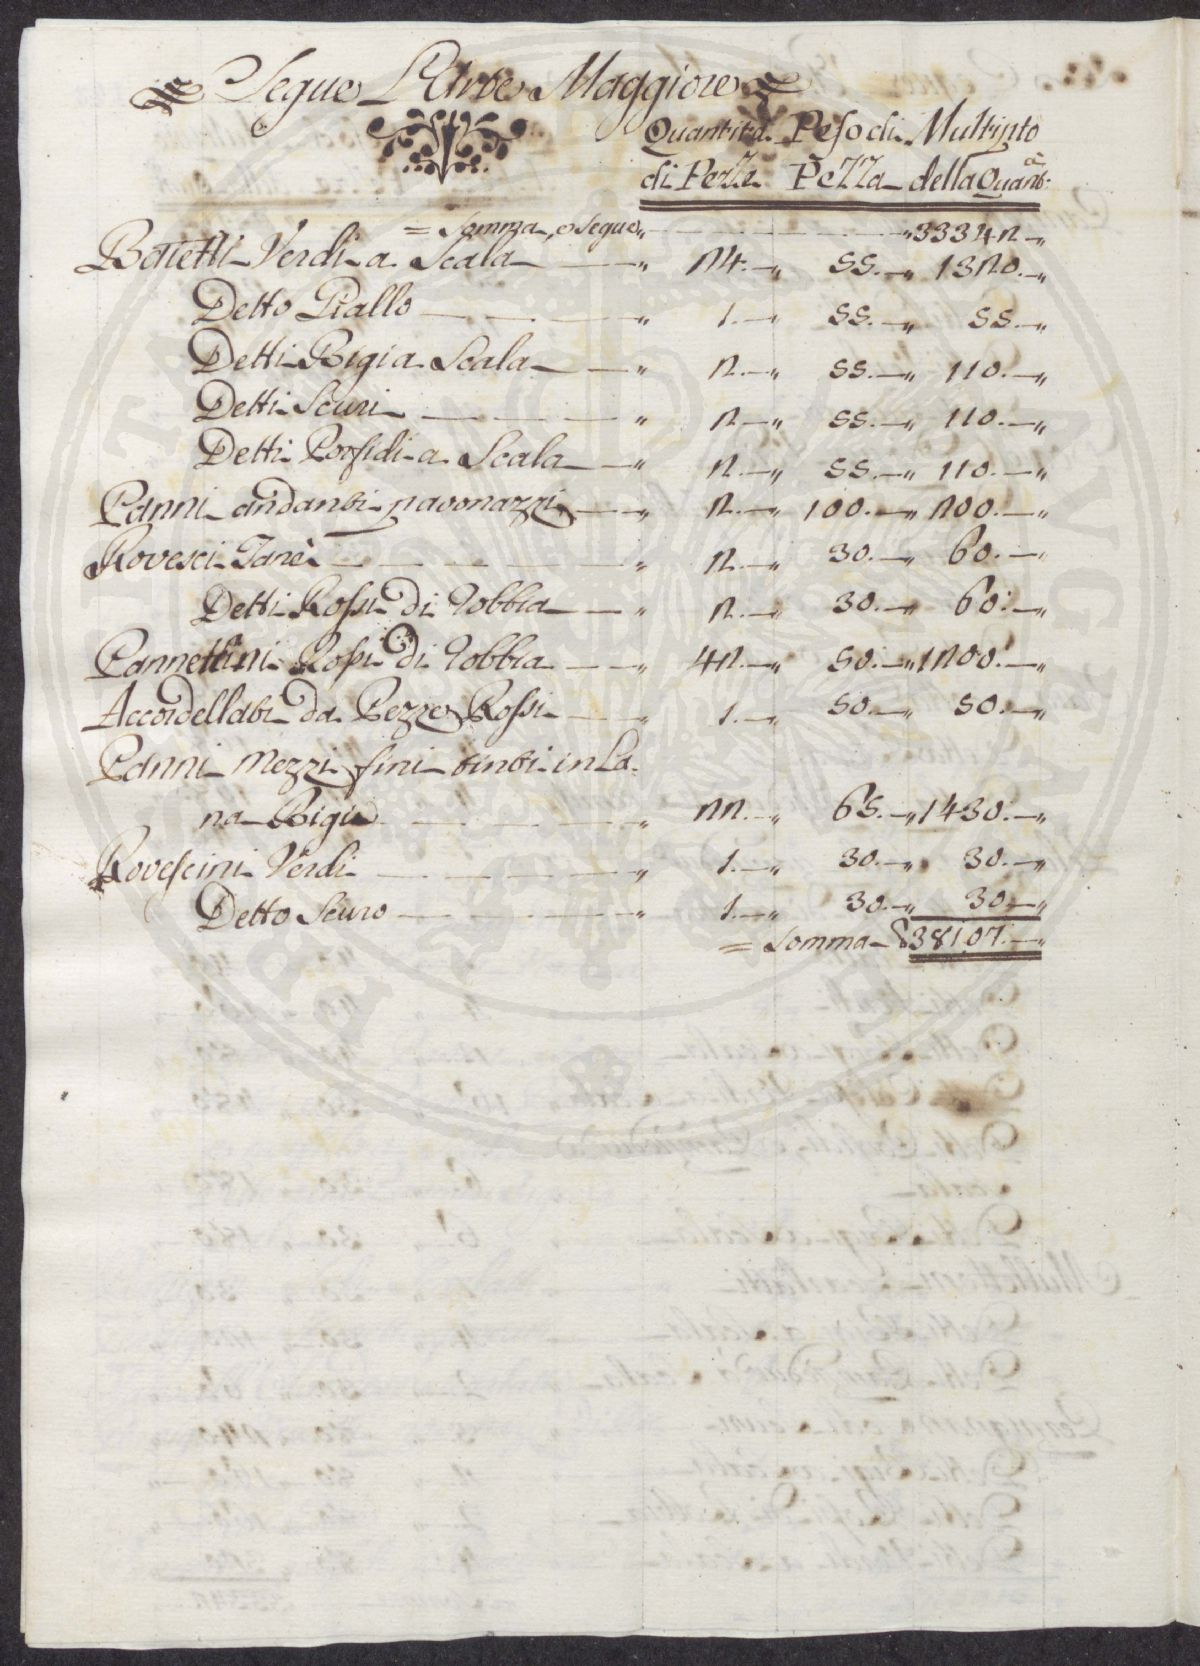 Segue L'Arte Maggiore
Quantità Peso di Multipto
di Pezze Pezza della Quantà:
= Somma, e Segue " 33342 "
Bottetti Verdi a Scala " 24. " 55. " 1320. "
Detto Giallo " 1. " 55. " 55. "
Detti Bigi a Scala " 2. " 55. " 110. "
Detti Scuri " 2. " 55. " 110. "
Detti Porfidi a Scala " 2. " 55. " 110. "
Panni andanti pavonazzi " 2. " 100. " 200. "
Rovesci Tanè " 2. " 30. " 60. "
Detti Rossi di Robbia " 2. " 30. " 60. "
Pannettini Rossi di Robbia " 42. " 50. " 1200. "
Accordellati da Pezze Rossi " 1. " 50. " 50. "
Panni Mezzi fini tinti in La=
na Bigia " 22. " 65. " 1430. "
Rovescini Verdi " 1. " 30. " 30. "
Detto Scuro " 1. " 30. " 30. "
= Somma 38107. "